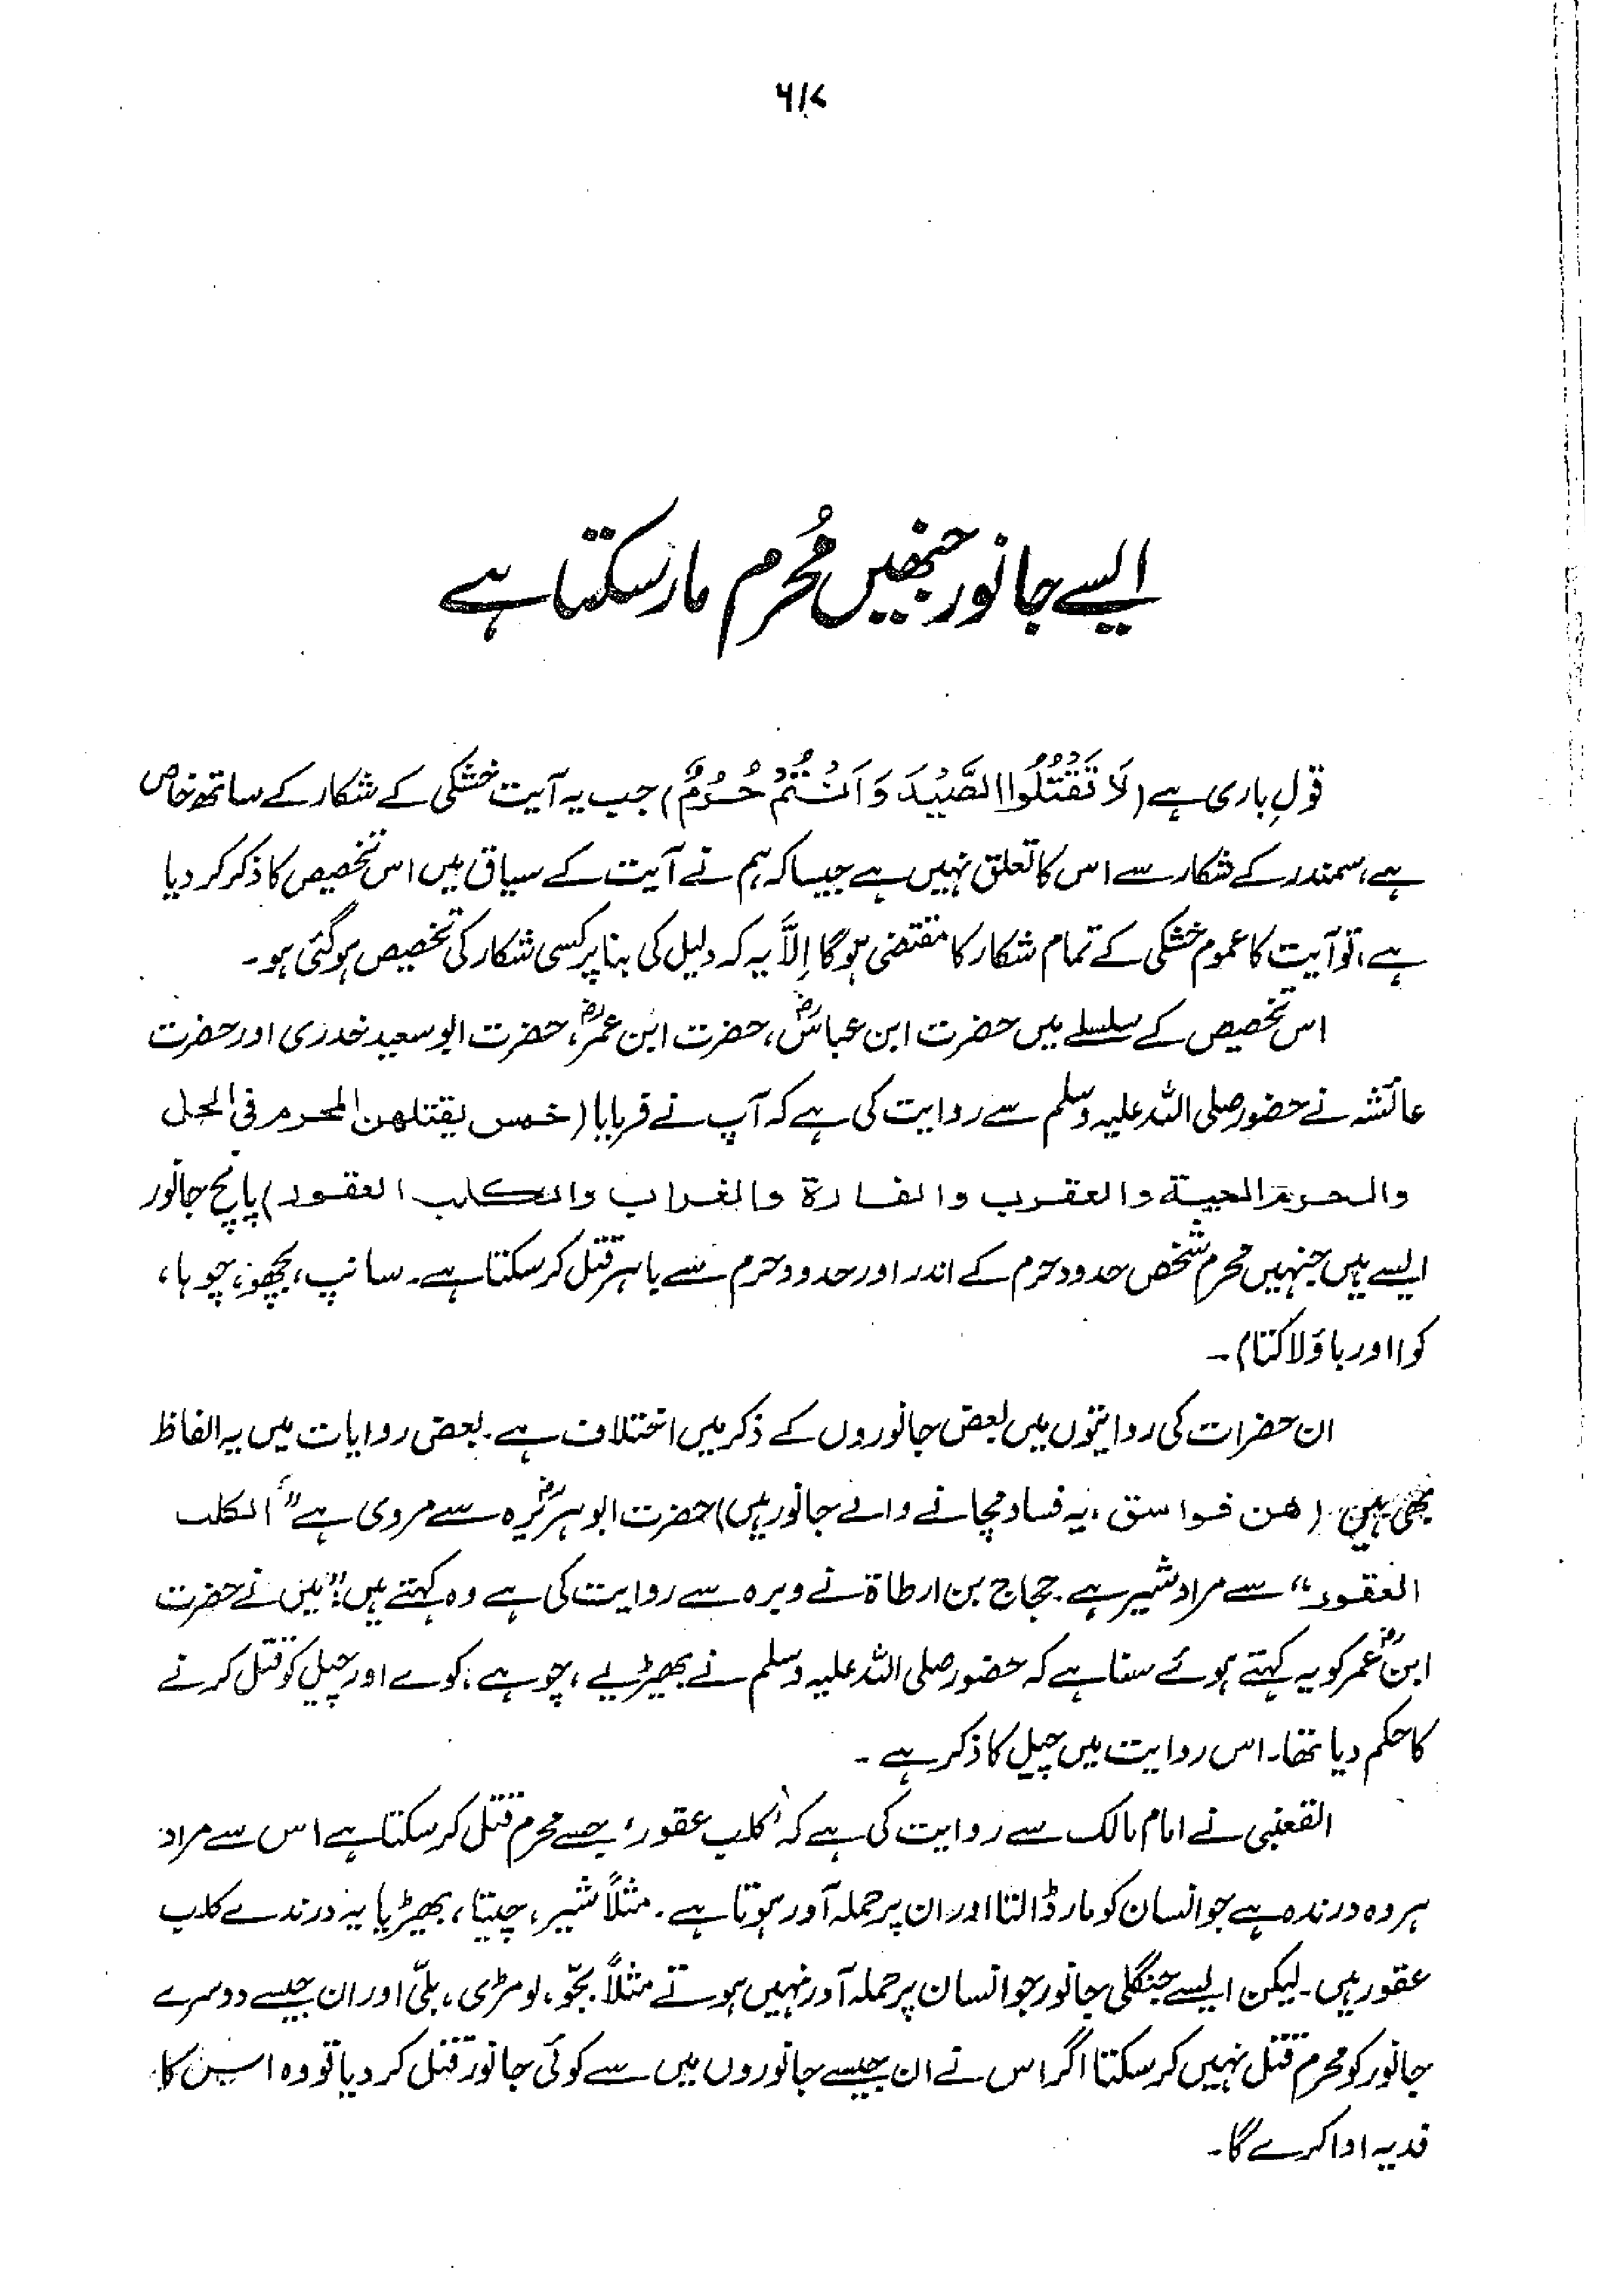 ۶۱۷
ایسے جانور جنھیں مُحرم مار سکتا ہے
قولِ باری ہے (لَا تَقْتُلُوا الصَّيْدَ وَ اَنْتُمْ حُرُمٌ) جب یہ آیت خشکی کے شکار کے ساتھ خاص
ہے، سمندر کے شکار سے اس کا تعلق نہیں ہے جیسا کہ ہم نے آیت کے سیاق میں اس تخصیص کا ذکر کر دیا
ہے، تو آیت کا عموم خشکی کے تمام شکار کا مقتضی ہوگا اِلاَّ یہ کہ دلیل کی بنا پر کسی شکار کی تخصیص ہوگئی ہو۔
اس تخصیص کے سلسلے میں حضرت ابن عباسؓ، حضرت ابن عمرؓ، حضرت ابو سعید خدری اور حضرت
عائشہ نے حضور صلی اللہ علیہ وسلم سے روایت کی ہے کہ آپ نے فرمایا (خمس یقتلھن المحرم فی الحل
والحرم الحیۃ والعقرب والفارۃ والغراب والکلب العقور) پانچ جانور
ایسے ہیں جنہیں محرم شخص حدود حرم کے اندر اور حدود حرم سے باہر قتل کر سکتا ہے۔ سانپ، بچھو، چوہا،
کوا اور باؤلا کتا)۔
ان حضرات کی روایتوں میں بعض جانوروں کے ذکر میں اختلاف ہے۔ بعض روایات میں یہ الفاظ
بھی ہیں۔ (ھن فواسق، یہ فساد مچانے والے جانور ہیں) حضرت ابو ہریرؓہ سے مروی ہے "الکلب
العقور" سے مراد شیر ہے۔ حجاج بن ارطاۃ نے وبرہ سے روایت کی ہے وہ کہتے ہیں: "میں نے حضرت
ابن عمرؓ کو یہ کہتے ہوئے سنا ہے کہ حضور صلی اللہ علیہ وسلم نے بھیڑیے، چوہے، کوے اور چیل کو قتل کرنے
کا حکم دیا تھا۔ اس روایت میں چیل کا ذکر ہے۔
القعنبی نے امام مالک سے روایت کی ہے کہ 'کلب عقور' جسے محرم قتل کر سکتا ہے اس سے مراد
ہر وہ درندہ ہے جو انسان کو مار ڈالتا اور ان پر حملہ آور ہوتا ہے۔ مثلاً شیر، چیتا، بھیڑیا یہ درندے کلب
عقور ہیں۔ لیکن ایسے جنگلی جانور جو انسان پر حملہ آور نہیں ہوتے مثلاً بجّو، لومڑی، بلّی اور ان جیسے دوسرے
جانور کو محرم قتل نہیں کر سکتا اگر اس نے ان جیسے جانوروں میں سے کوئی جانور قتل کر دیا تو وہ اس کا
فدیہ ادا کرے گا۔